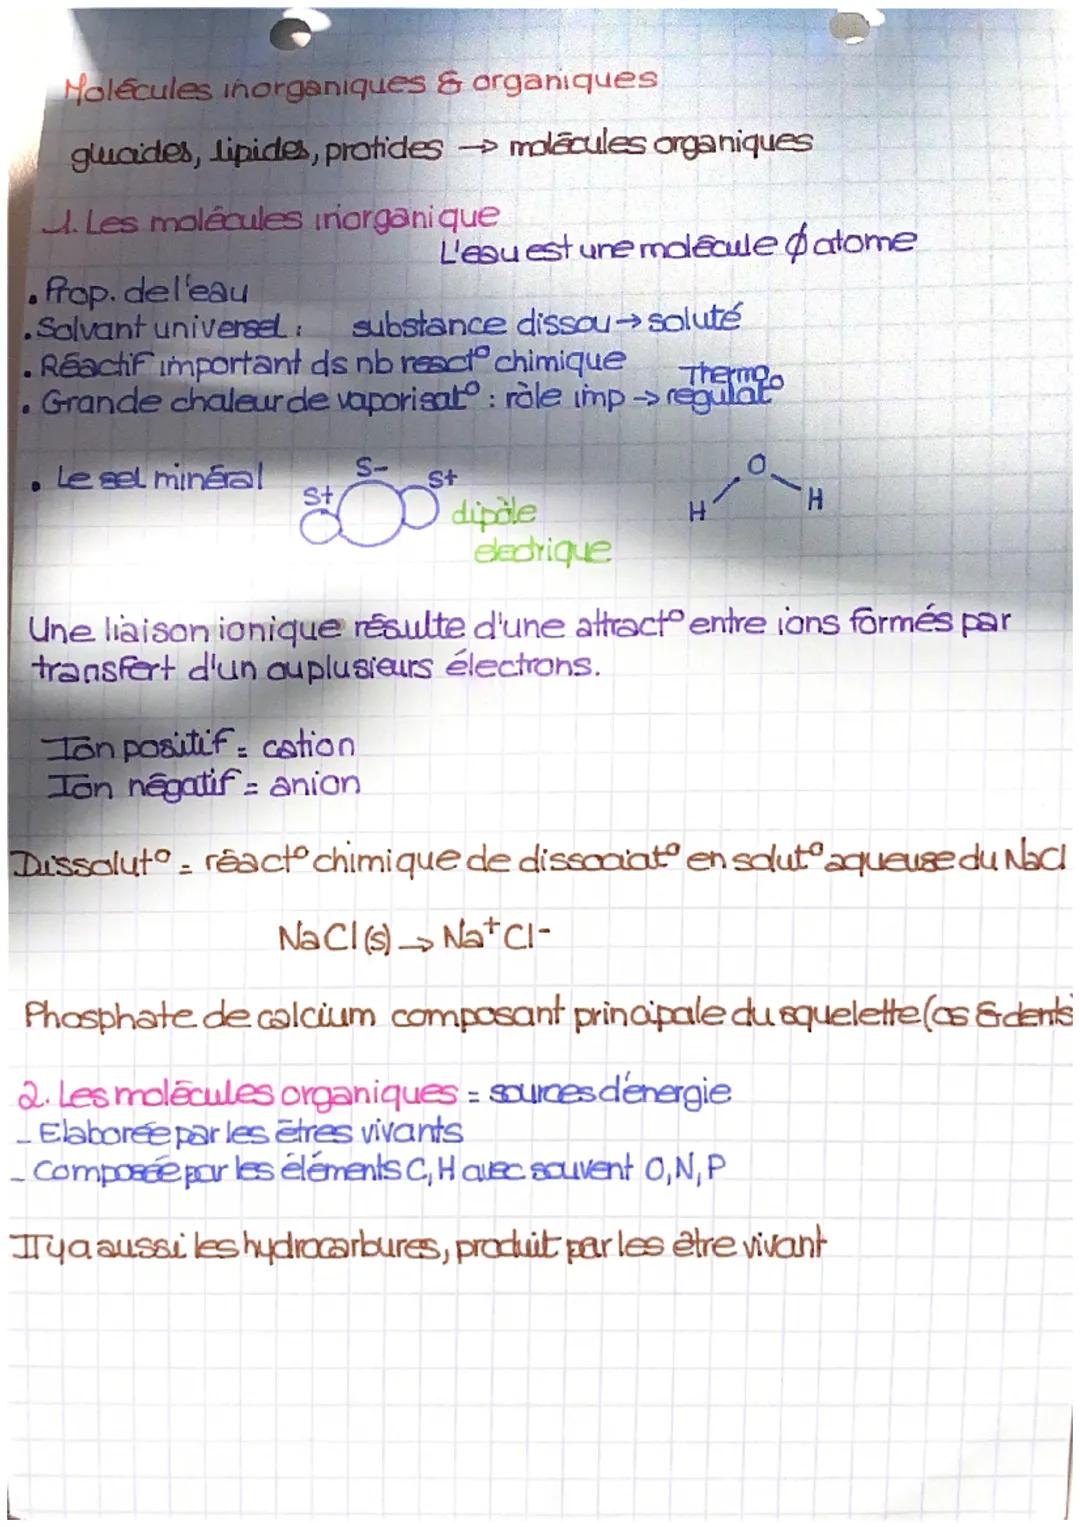 Molécules inorganiques & organiques
glucides, lipides, protides → molécules organiques
1. Les molécules inorganique
L'eau est une molécule ∅ atome
• Prop. de l'eau
• Solvant universel : substance dissou → soluté
• Réactif important ds nb react° chimique
• Grande chaleur de vaporisat° : rôle imp → Thermo régulat°
• Le sel minéral
S-
S+ S+
dipôle
electrique
O
H H
Une liaison ionique résulte d'une attract° entre ions formés par
transfert d'un ou plusieurs électrons.
Ion positif = cation
Ion négatif = anion
Dissolut° = réact° chimique de dissociat° en solut° aqueuse du NaCl
NaCl (s) → Na+ Cl-
Phosphate de calcium composant principale du squelette (os & dents)
2. Les molécules organiques = sources d'énergie
- Elaborée par les êtres vivants
- Composée par les éléments C, H avec souvent O, N, P
Il y a aussi les hydrocarbures, produit par les être vivant